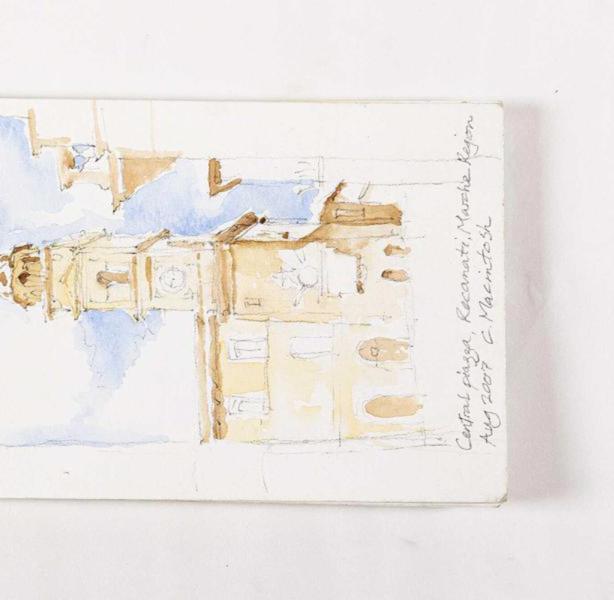 Central piazza, Recanati, Marche Region
Aug 2007 C Macintosh